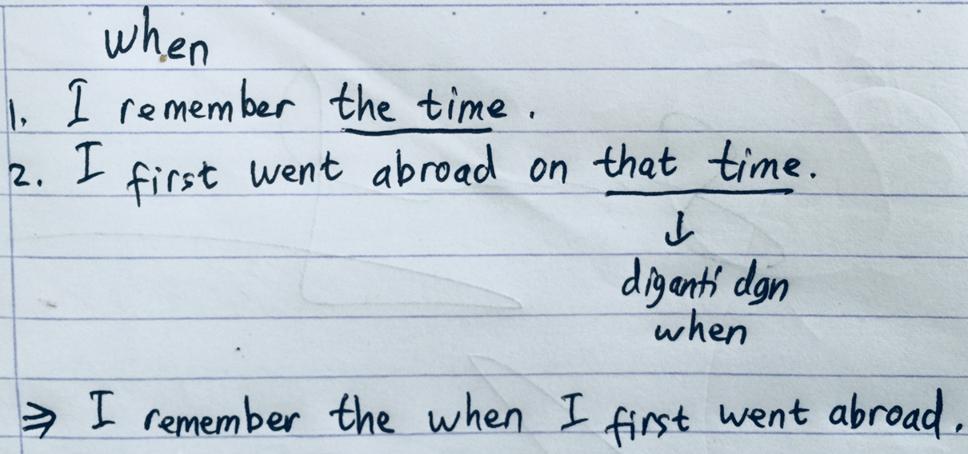 when
1. I remember the time.
2. I first went abroad on that time.
↓
diganti dgn
when
⇒ I remember the when I first went abroad.